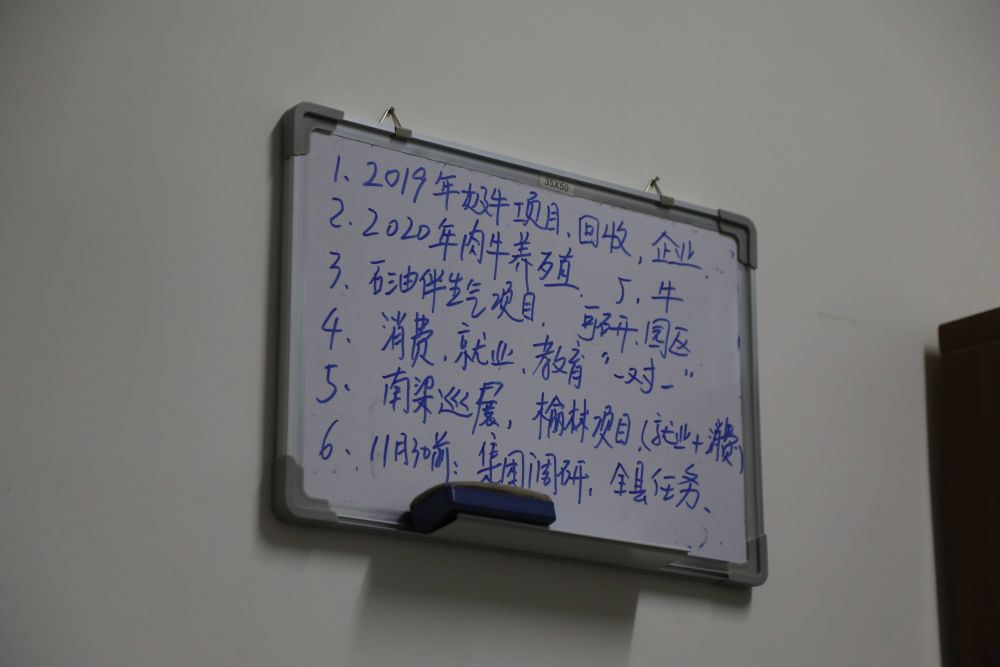 35X50
1、2019年奶牛项目、回收，企业
2、2020年肉牛养殖、 5、牛
3、石油伴生气项目、可研、园区
4、消费、就业、教育“一对一”
5、南梁巡展，榆林项目、(就业+消费)
6、11月30前：集团调研，全县任务、